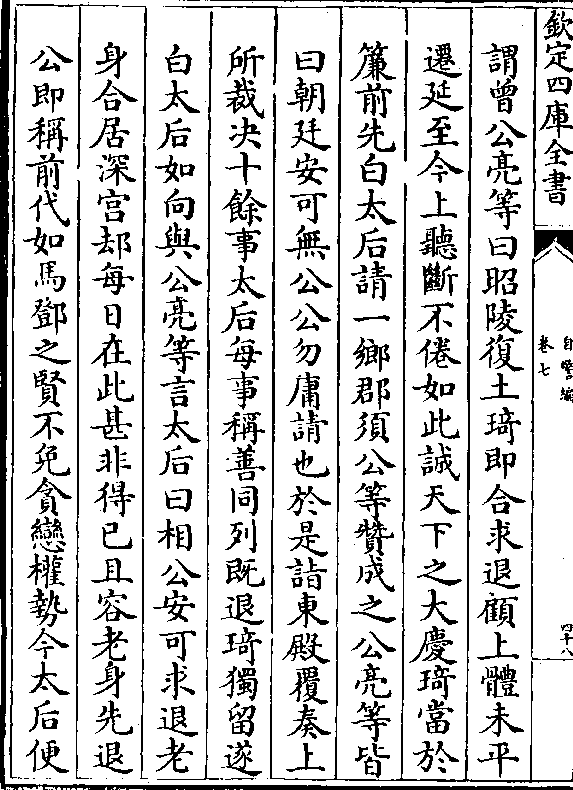 欽定四庫全書
自警編
卷七
四十八
謂曾公亮等曰昭陵復土琦即合求退顧上體未平
遷延至今上聽斷不倦如此誠天下之大慶琦當於
簾前先白太后請一鄉郡須公等贊成之公亮等皆
曰朝廷安可無公公勿庸請也於是詣東殿覆奏上
所裁決十餘事太后每事稱善同列既退琦獨留遂
白太后如向與公亮等言太后曰相公安可求退老
身合居深宫却每日在此甚非得已且容老身先退
公即稱前代如馬鄧之賢不免貪戀權勢今太后便